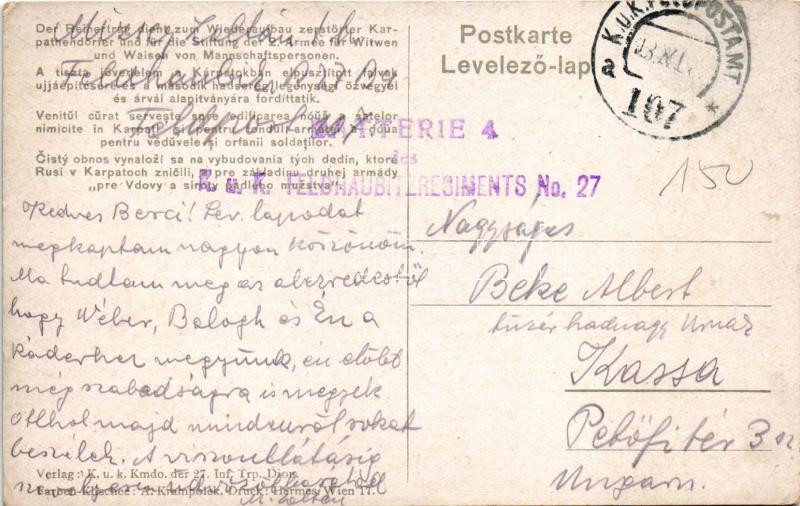 Der Reinertrag dient zum Wiederaufbau zerstörter Kar-
pathendörfer und für die Stiftung der 2. Armee für Witwen
und Waisen von Mannschaftspersonen.
A tiszta jövedelem a Kárpátokban elpusztított falvak
ujjáépítésére és a második hadsereg legénységi özvegyei
és árvái alapitványára fordíttatik.
Venitŭl cŭrat servește spre edificarea nouă a satelor
nimicite în Carpaţi și pentru fondul armatei a doua
pentru veduvele și orfanii soldaţilor.
Čistý obnos vynaloží sa na vybudovania tých dedin, ktore
Rusi v Karpatoch zničili, a pre základinu druhej armády
„pre Vdovy a siroty padlého mužstva".
Mícsky Zoltán
Feldpost 107
Postkarte
Levelező-lap
K.u.K. FELDPOSTAMT
a
107
BATTERIE 4
des
K. u. K. FELDHAUBITZREGIMENTS No. 27
150
Kedves Berci! Lev. lapodat
megkaptam nagyon köszönöm.
Ma tudtam meg az alezredestől
hogy Wéber, Balogh és Én a
káderhez megyünk, én előbb
még szabadságra is megyek.
Otthol majd mindenről sokat
beszélek. A viszontlátásig
M. Zoltán
Nagyságos
Beke Albert
tüzér hadnagy Urnak
Kassa
Petőfi tér 3 sz
Ungarn.
Verlag: K. u. k. Kmdo. der 27. Inf. Trp. Dion.
Farben-Klischee: A. Krampolek. Druck: Hermes, Wien 17.